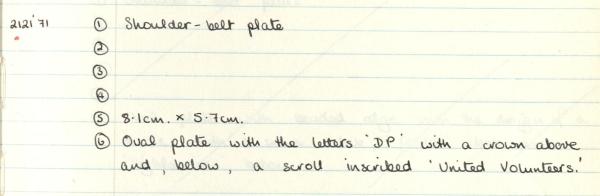 212i'71 ① Shoulder-belt plate
②
③
④
⑤ 8.1cm. x 5.7cm.
⑥ Oval plate with the letters 'DP' with a crown above
and, below, a scroll inscribed 'United Volunteers.'